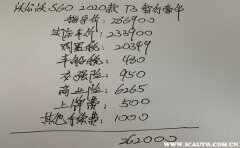 沃尔沃S60 2020款 T3 智行豪华
指导价: 286900
实际车价: 233900
购置税: 20389
车船税: 480
交强险: 950
商业险: 6265
上牌费: 500
其他手续费: 1000
262000
www.icauto.com.cn